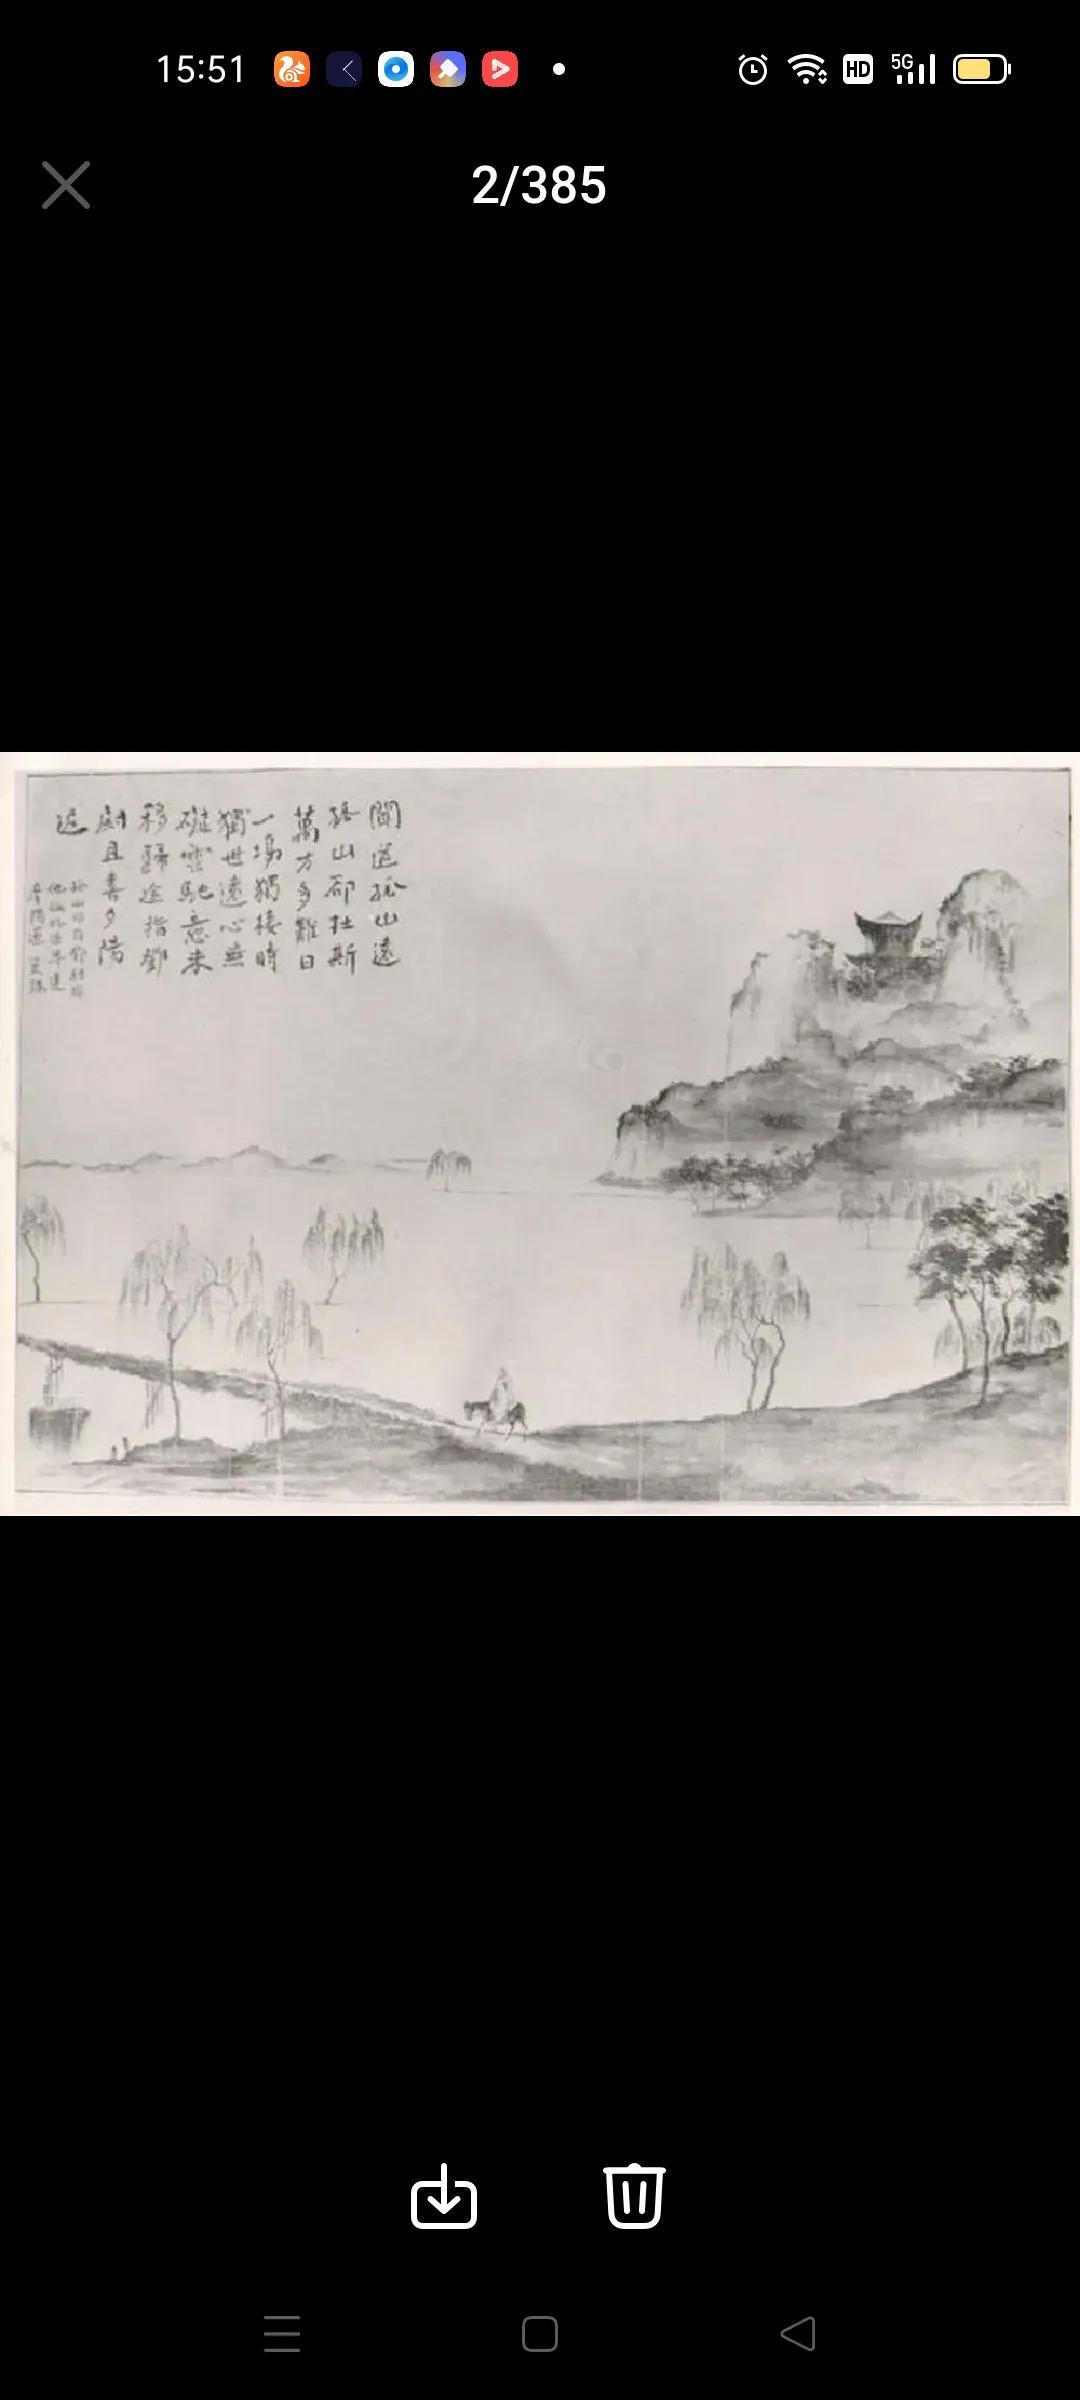 15:51
HD
5G
2/385
聞道孤山遠
孤山卻在斯
萬方多難日
一場獨接時
獨世遠心無
礙雲馳意未
移歸途指鄧
尉且喜夕陽
遲